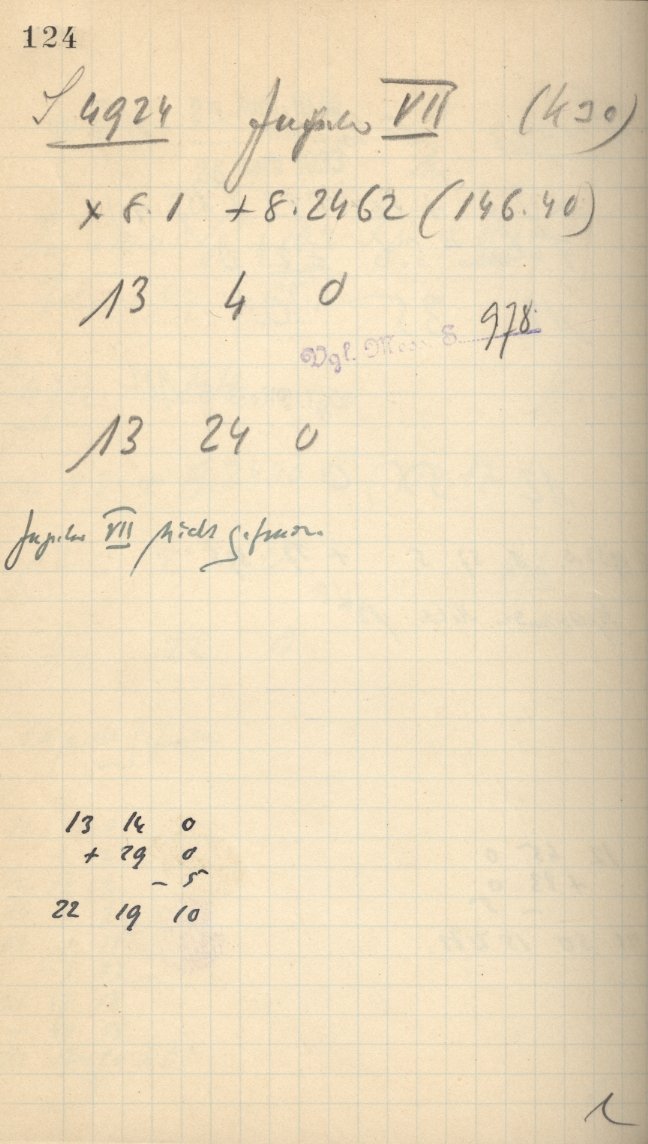 124
S 4924 Jupiter VII (430)
x 8.1 + 8.2462 (146.40)
13 4 0
Vgl. Mess S. 978
13 24 0
Jupiter VII nicht gefunden
13 14 0
+ 29 0
- 5
22 19 10